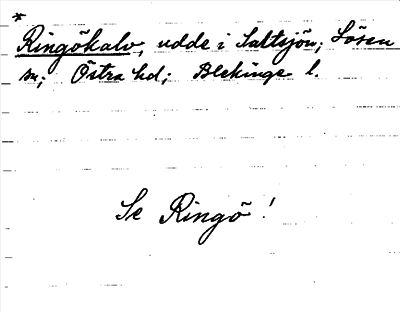 *
Ringökalv, udde i Saltsjön; Lösen
sn; Östra hd; Blekinge l.
Se Ringö!